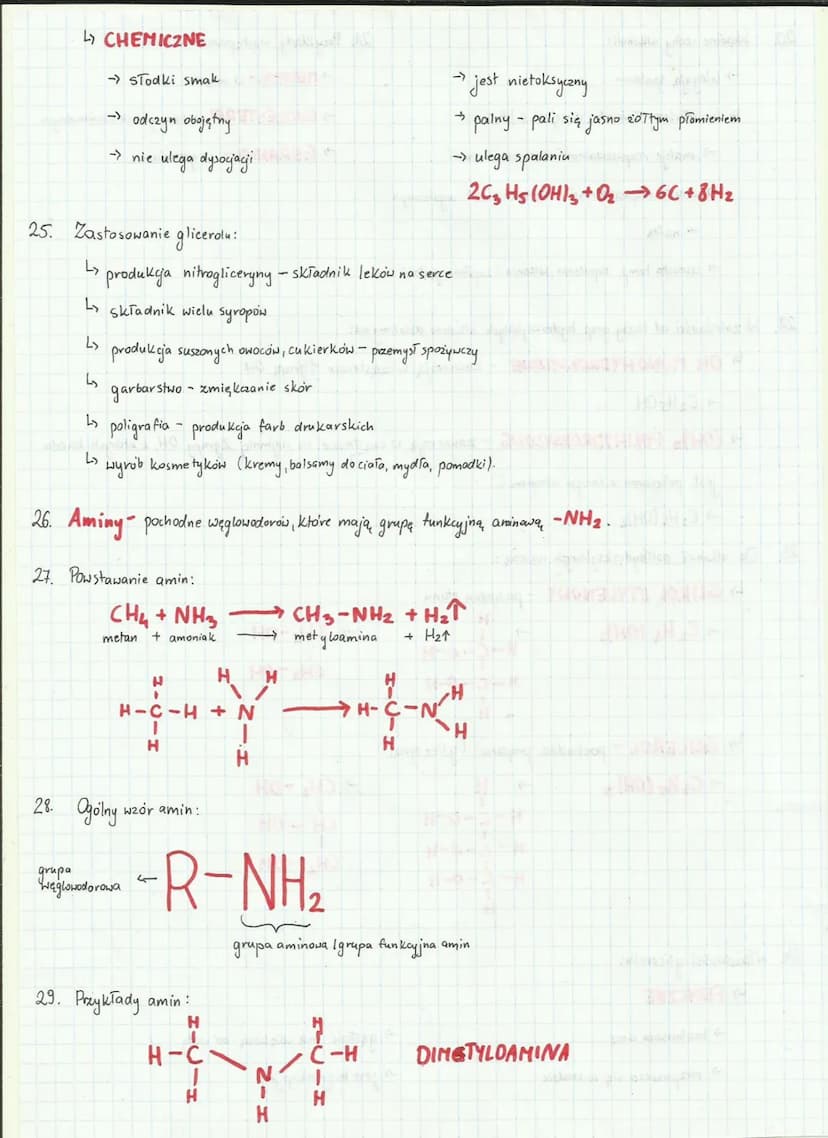 ↳ CHEMICZNE
→ słodki smak
→ odczyn obojętny
→ nie ulega dysocjacji
→ jest nietoksyczny
→ palny - pali się jasno żółtym płomieniem
→ ulega spalaniu
2C₃H₅(OH)₃ + O₂ → 6C + 8H₂
25. Zastosowanie glicerolu:
↳ produkcja nitrogliceryny - składnik leków na serce
↳ składnik wielu syropów
↳ produkcja suszonych owoców, cukierków - przemysł spożywczy
↳ garbarstwo - zmiękczanie skór
↳ poligrafia - produkcja farb drukarskich
↳ wyrób kosmetyków (kremy, balsamy do ciała, mydła, pomadki).
26. Aminy - pochodne węglowodorów, które mają grupę funkcyjną aminową -NH₂.
27. Powstawanie amin:
CH₄ + NH₃ → CH₃-NH₂ + H₂↑
metan + amoniak → metyloamina + H₂↑
H H H H
H-C-H + N → H-C-N H
H H H H
28. Ogólny wzór amin:
grupa węglowodorowa ← R-NH₂
grupa aminowa / grupa funkcyjna amin
29. Przykłady amin:
H H
H-C C-H DIMETYLOAMINA
N
H H
H